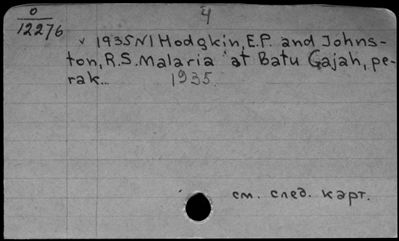 4
O
12276
v 1935 N1 Hodgkin, E.P. and Johns-
ton, R.S. Malaria at Batu Gajah, pe-
rak...
1935.
см. след. карт.